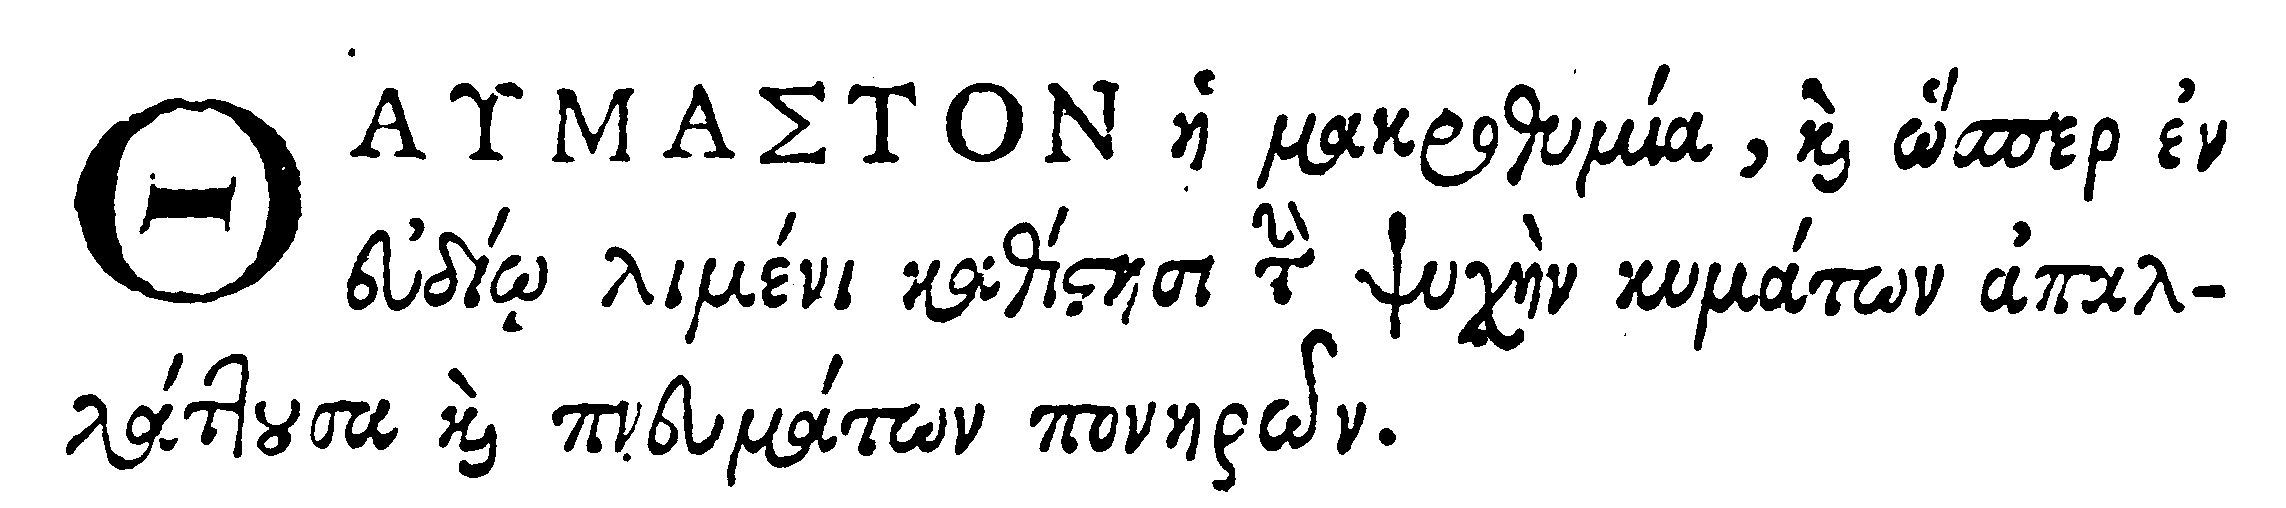 ΘΑΥΜΑΣΤΟΝ ἡ μακροθυμία, καὶ ὥσπερ ἐν
εὐδίῳ λιμένι καθίστησι τὴν ψυχὴν κυμάτων ἀπαλ-
λάττουσα καὶ πνευμάτων πονηρῶν.